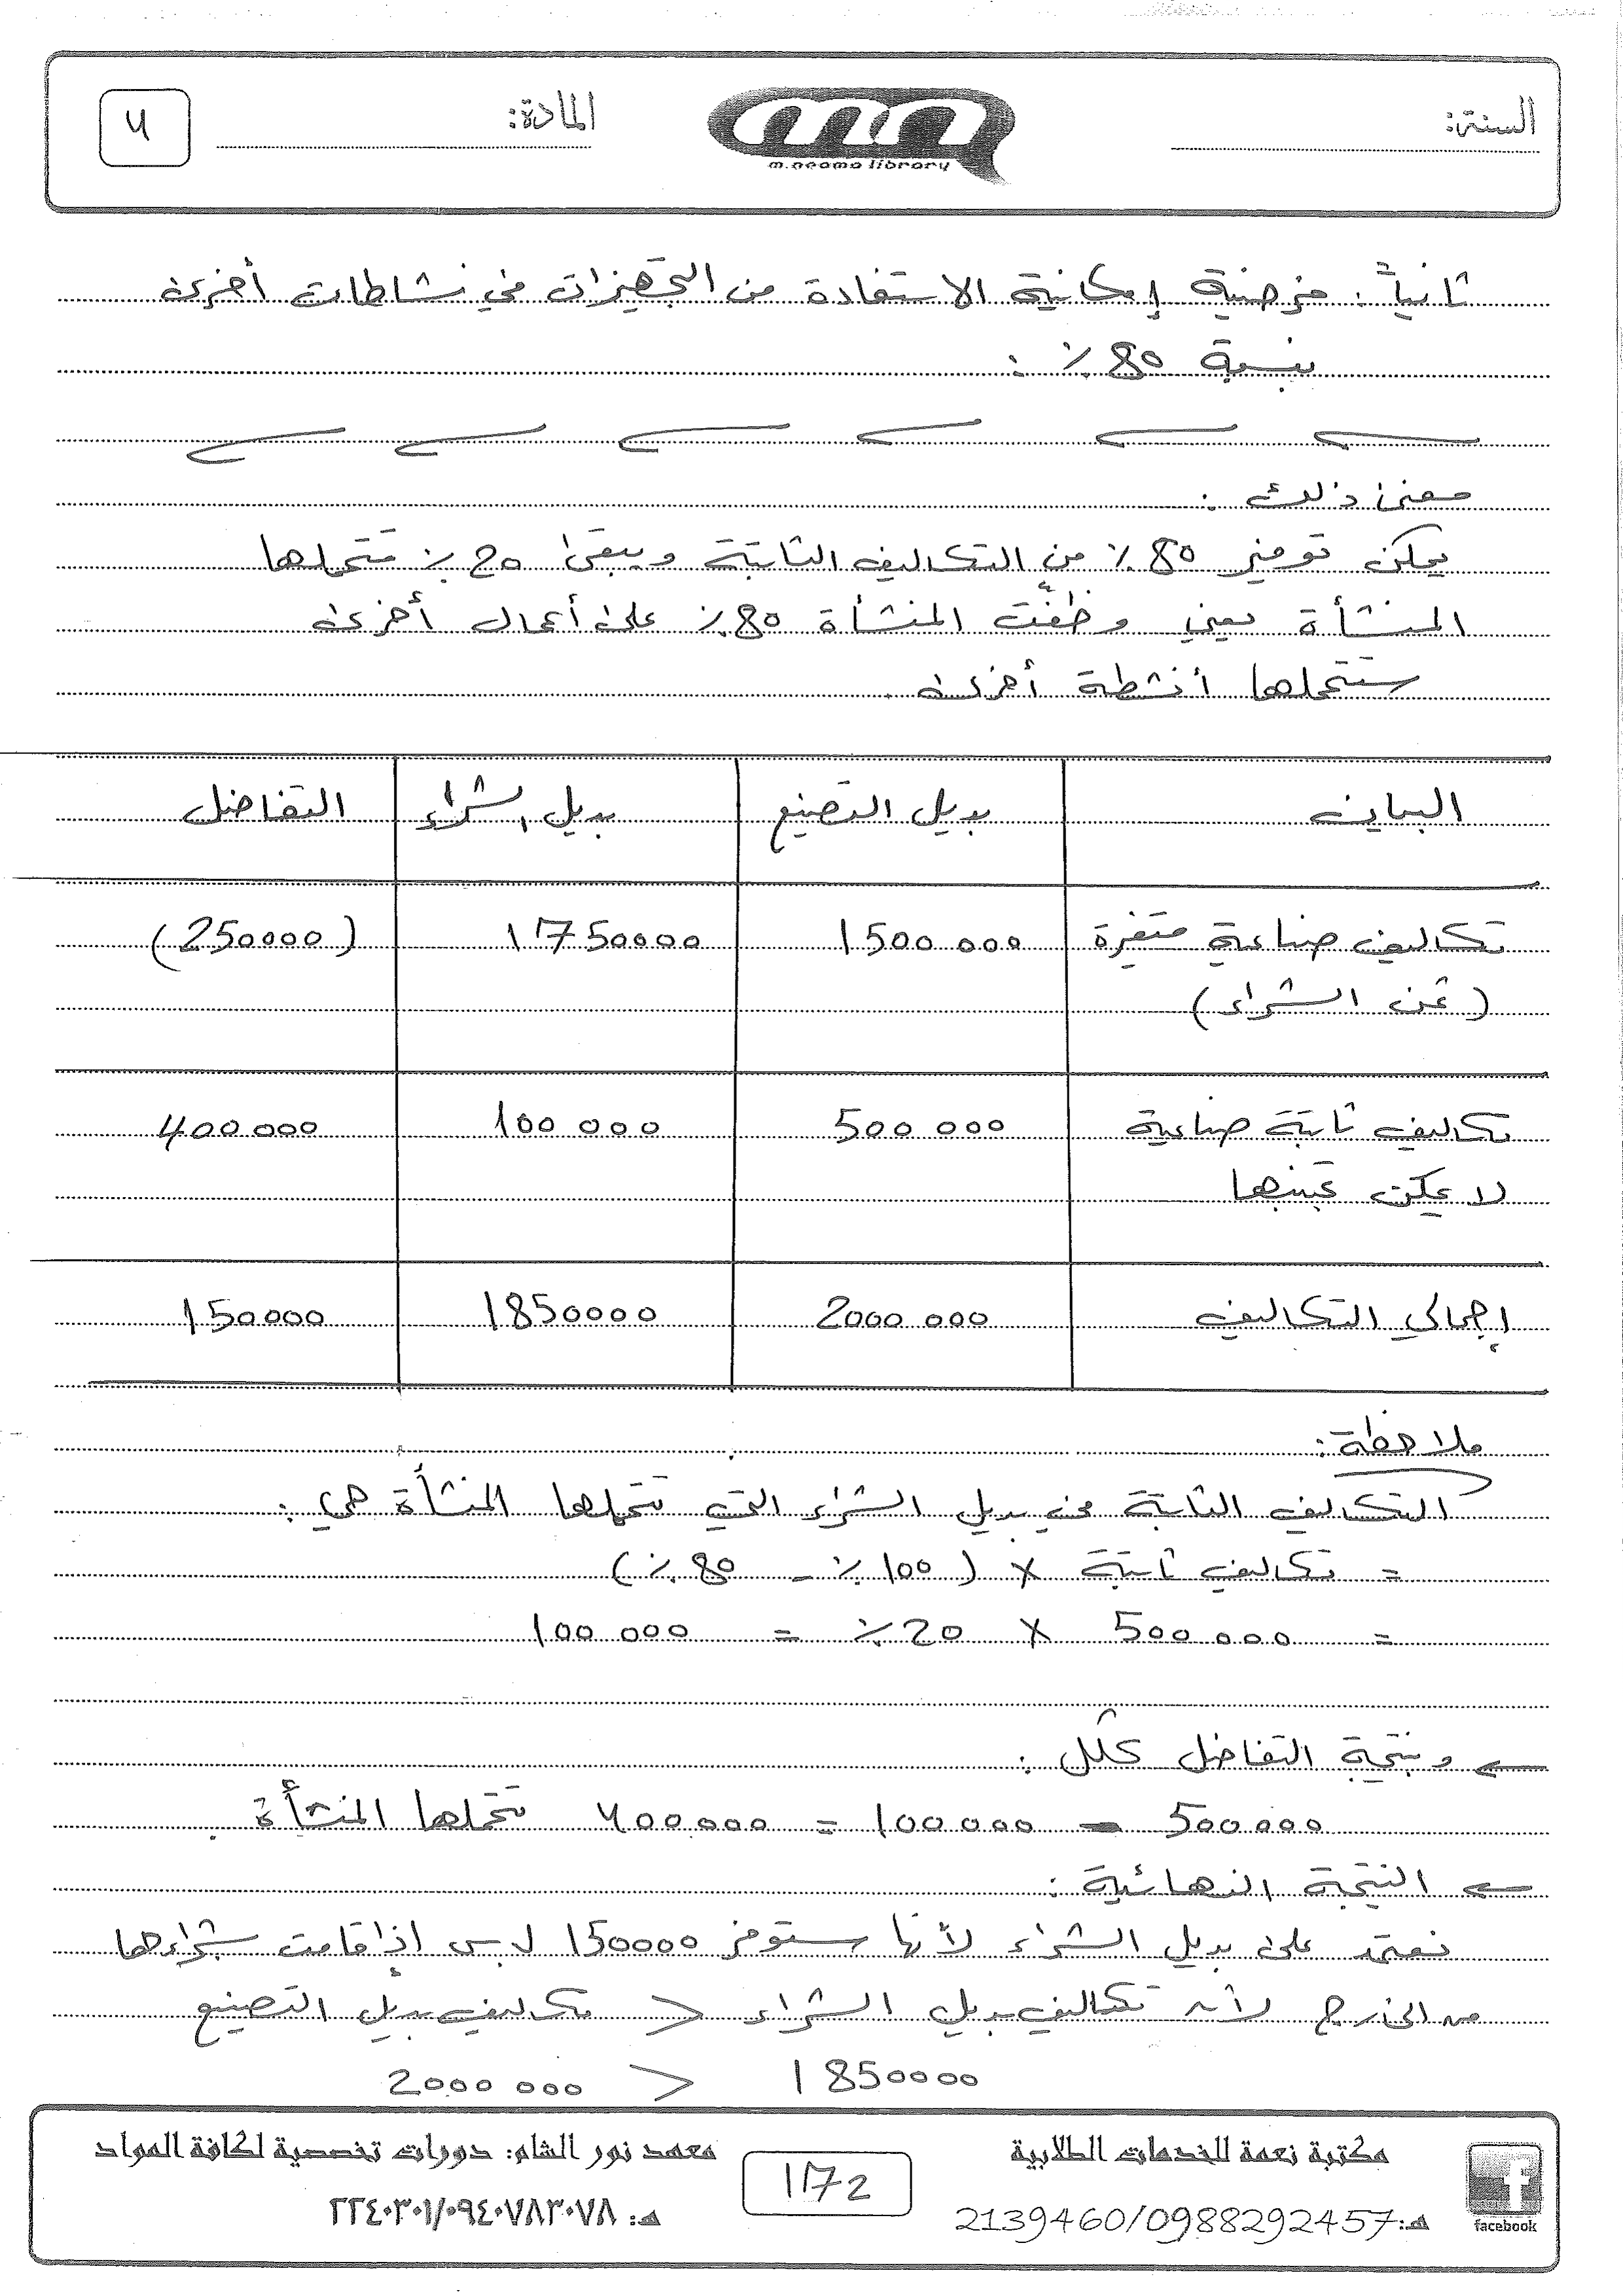 السنة:
m.neama library
المادة:
4
ثانياً: فرضية إمكانية الاستفادة من التجهيزات في نشاطات أخرى
بنسبة 80٪ :
معنى ذلك :
يمكن توفير 80٪ من التكاليف الثابتة ويبقى 20٪ تتحملها
المنشأة يعني وظفت المنشأة 80٪ على أعمال أخرى
ستتحملها أنشطة أخرى .
البيان بديل التصنيع بديل الشراء التفاضل
تكاليف صناعية متغيرة 1500 000 1750000 (250000)
(ثمن الشراء)
تكاليف ثابتة صناعية 500 000 100 000 400 000
لا يمكن تجنبها
إجمالي التكاليف 2000 000 1850000 150000
ملاحظة:
التكاليف الثابتة في بديل الشراء التي تتحملها المنشأة هي :
= تكاليف ثابتة × (100٪ - 80٪)
= 500 000 × 20٪ = 100 000
← ونتيجة التفاضل ككل :
500 000 - 100 000 = 400 000 تتحملها المنشأة .
← النتيجة النهائية :
نعتمد على بديل الشراء لأنها ستوفر 150000 ل.س إذا قامت بشراءها
من الخارج لأنه تكاليف بديل الشراء > تكاليف بديل التصنيع
1850000 > 2000 000
facebook
مكتبة نعمة للخدمات الطلابية
هـ: 2139460/0988292457
1172
معهد نور الشام: دورات تخصصية لكافة المواد
هـ: ٢٢٤٠٣٠١/٠٩٤٠٧٨٣٠٧٨